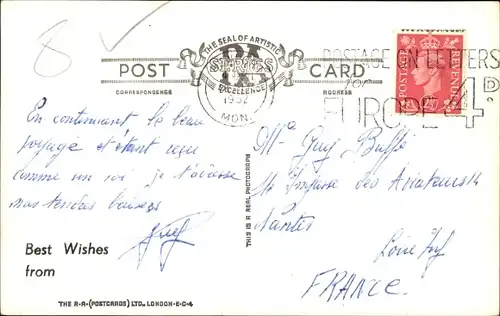 8
THE SEAL OF ARTISTIC
EXCELLENCE
POST CARD
CORRESPONDENCE ADDRESS
1952
MON
POSTAGE ON LETTERS
for
EUROPE 4D
POSTAGE REVENUE
En continuant le beau
voyage et étant reçu
comme un roi je t'adresse
mes tendres baisers
Guy
Best Wishes
from
THIS IS A REAL PHOTOGRAPH
Mme Guy
14 Impasse des Amateurs 14
Nantes
Loire Inf
FRANCE.
THE R·A·(POSTCARDS) LTD., LONDON·E·C·4